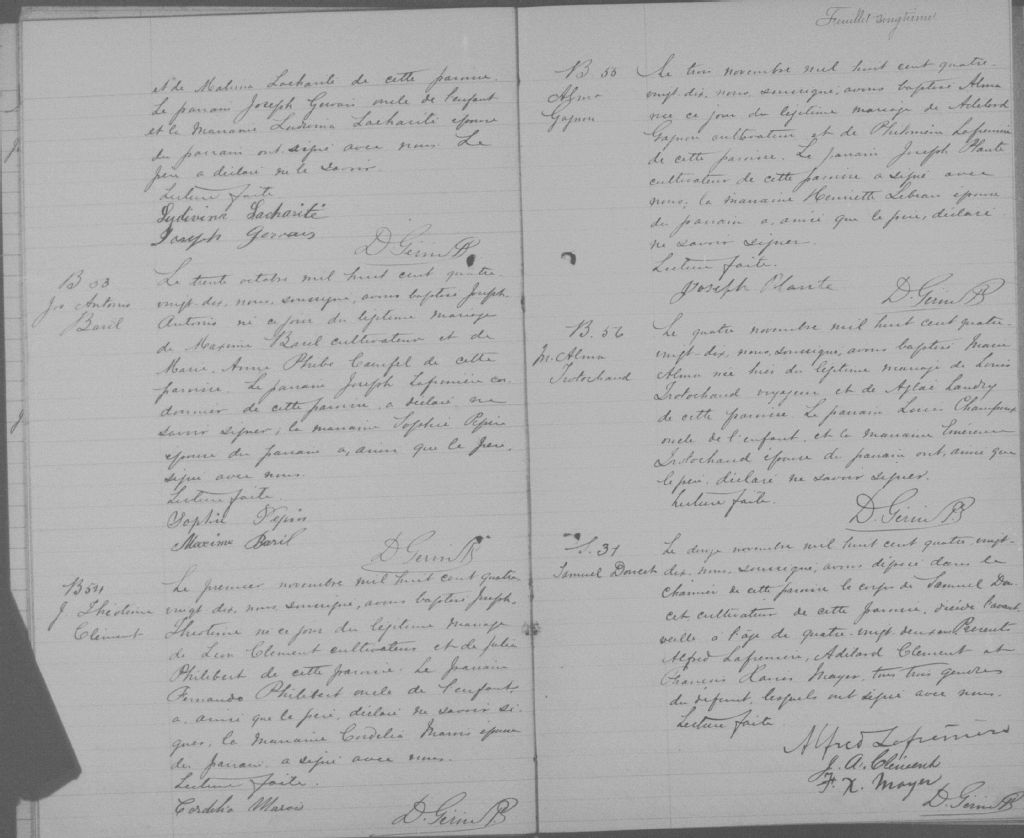 et de Malvina Lacharité de cette paroisse.
Le parrain Joseph Gervais oncle de l'enfant
et la Marraine Ludivina Lacharité épouse
du parrain ont signé avec nous. Le
père a déclaré ne le savoir.
Lecture faite.
Ludivina Lacharité
Joseph Gervais
D. Gérin Ptr
B 53
Jos Antonio
Baril
Le trente octobre mil huit cent quatre-
vingt-dix, nous, soussigné, avons baptisé Joseph-
Antonio né ce jour du légitime mariage
de Maxime Baril cultivateur et de
Marie-Anne Phebe de cette
paroisse. Le parrain Joseph Lafrenière cor-
donnier de cette paroisse, a déclaré ne
savoir signer; la marraine Sophie Pépin
épouse du parrain a, ainsi que le père,
signé avec nous.
Lecture faite.
Sophie Pépin
Maxime Baril
D. Gérin Ptr
B 54
J. Théotime
Clément
Le premier novembre mil huit cent quatre
vingt-dix, nous, soussigné, avons baptisé Joseph-
Théotime né ce jour du légitime mariage
de Léon Clément cultivateur et de Julie
Philibert de cette paroisse. Le parrain
Fernando Philibert oncle de l'enfant,
a, ainsi que le père, déclaré ne savoir si-
gner; la marraine Cordelia Marois épouse
du parrain a signé avec nous.
Lecture faite.
Cordelia Marois
D. Gérin Ptr
Feuillet
B. 55
Alma
Gagnon
Le trois novembre mil huit cent quatre-
vingt-dix, nous, soussigné, avons baptisé Alma
née ce jour du légitime mariage de Adélard
Gagnon cultivateur et de Philomène Lafrenière
de cette paroisse. Le parrain Joseph Plante
cultivateur de cette paroisse a signé avec
nous; la marraine Henriette Lebeau épouse
du parrain a, ainsi que le père, déclaré
ne savoir signer.
Lecture faite.
Joseph Plante
D. Gérin Ptr
B. 56
M. Alma
Trotochaud
Le quatre novembre mil huit cent quatre-
vingt-dix, nous, soussigné, avons baptisé Marie
Alma née hier du légitime mariage de Louis
Trotochaud voyageur et de Aglaé Landry
de cette paroisse. Le parrain Louis Champoux
oncle de l'enfant, et la Marraine Emérence
Trotochaud épouse du parrain ont, ainsi que
le père, déclaré ne savoir signer.
Lecture faite.
D. Gérin Ptr
S. 31
Samuel Doucet
Le douze novembre mil huit cent quatre vingt-
dix, nous, soussigné, avons déposé dans le
charnier de cette paroisse le corps de Samuel Dou-
cet cultivateur de cette paroisse, décédé l'avant
veille à l'âge de quatre-vingt deux ans. Présents
Alfred Lafrenière, Adélard Clément et
François Xavier Mayer, tous trois gendres
du défunt, lesquels ont signé avec nous.
Lecture faite
Alfred Lafrenière
J. A. Clément
F. X. Mayer
D. Gérin Ptr